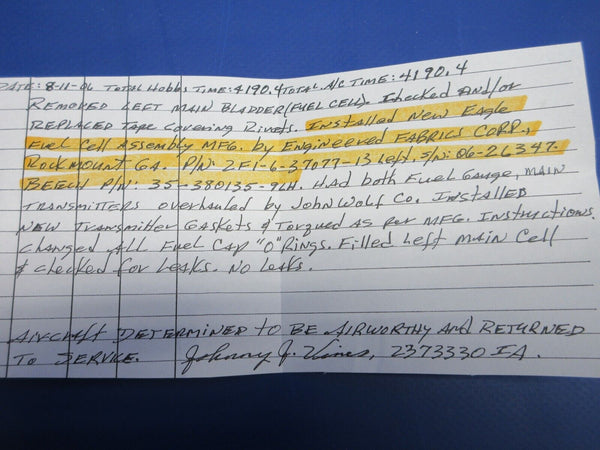 DATE: 8-11-06 TOTAL Hobbs TIME: 4190.4 TOTAL A/C TIME: 4190.4
REMOVED LEFT MAIN BLADDER (FUEL CELL). Checked And/or
REPLACED Tape Covering Rivets. Installed New Eagle
Fuel Cell Assembly MFG. by Engineered FABRICS CORP.,
ROCKMOUNT GA. P/N: 2F1-6-37077-13 Left. S/N: 06-26347.
BEECH P/N: 35-380135-9LH. HAD both Fuel Gauge, MAIN
TRANSMITTERS overhauled by John Wolf Co. INSTALLED
NEW Transmitter GASKETS & Torqued AS per MFG. INSTRUCTIONS.
Changed All Fuel Cap "O" Rings. Filled Left MAIN Cell
& checked for Leaks. No Leaks.
Aircraft DETERMINED to BE AIRWORTHY And RETURNED
TO SERVICE. Johnny J. Vines, 2373330 IA.